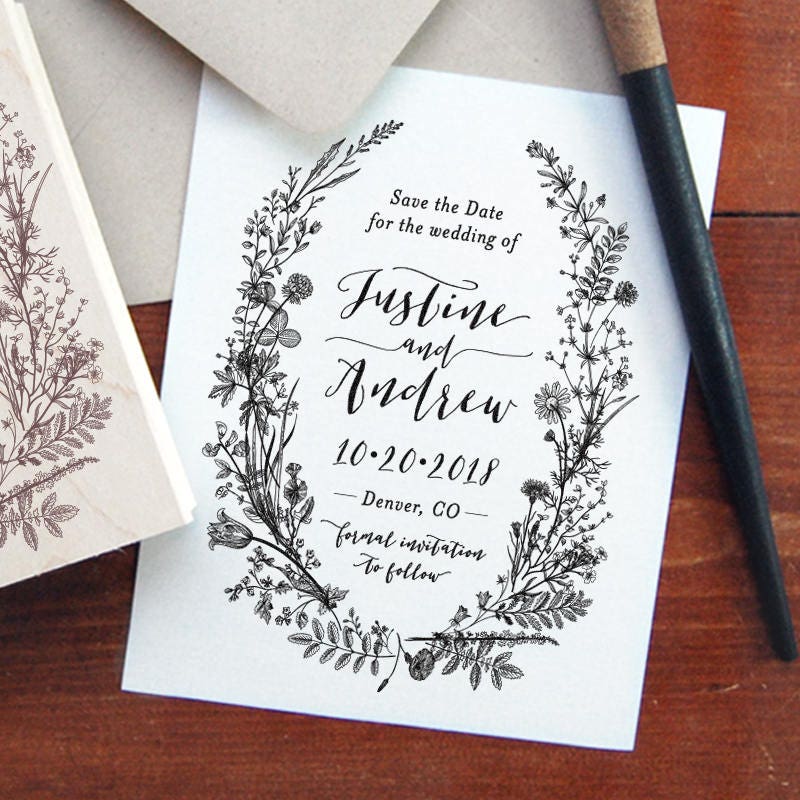 Save the Date
for the wedding of
Justine
and
Andrew
10•20•2018
Denver, CO
formal invitation
to follow